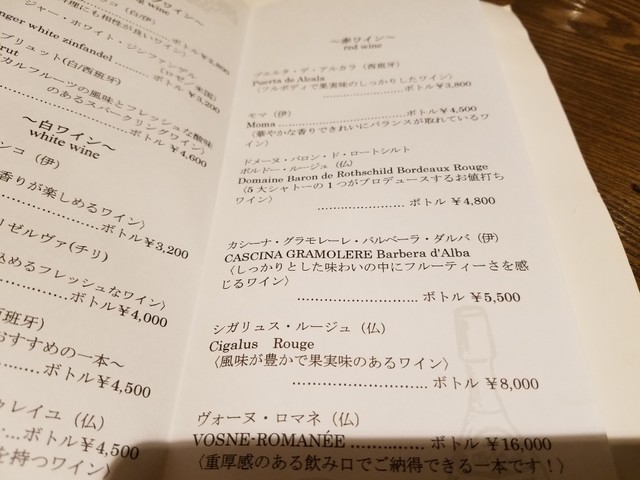 ワイン～
se wine
ラコ（白/伊）
料理にも相性が良いワイン〉
ボトル ¥3,800
nger white zinfandel
ジャー・ホワイト・ジンファンデル
（ロゼ/米国）
ボトル ¥3,200
rut
ブリュット(白/西班牙)
カルフルーツの風味とフレッシュな酸味
のあるスパークリングワイン〉
ボトル ¥4,600
～白ワイン～
white wine
ンコ（伊）
香りが楽しめるワイン〉
ボトル¥3,200
リゼルヴァ(チリ)
込めるフレッシュなワイン〉
ボトル ¥4,000
西班牙)
おすすめの一本～
ボトル ¥4,500
ゥレイユ（仏）
ボトル ¥4,500
を持つワイン〉
～赤ワイン～
red wine
プエルタ・デ・アルカラ（西班牙）
Puerta de Alcala
〈フルボディで果実味のしっかりしたワイン〉
……………………ボトル ¥3,800
モマ（伊）
Moma ……………………………ボトル ¥4,500
〈華やかな香りできれいにバランスが取れているワ
イン〉
ドメーヌ・バロン・ド・ロートシルト
ボルドー・ルージュ（仏）
Domaine Baron de Rothschild Bordeaux Rouge
〈5 大シャトーの 1 つがプロデュースするお値打ち
ワイン〉
……………………ボトル ¥4,800
カシーナ・グラモレーレ・バルベーラ・ダルバ（伊）
CASCINA GRAMOLERE Barbera d'Alba
〈しっかりとした味わいの中にフルーティーさを感
じるワイン〉
…………………………… ボトル ¥5,500
シガリュス・ルージュ（仏）
Cigalus Rouge
〈風味が豊かで果実味のあるワイン〉
…………………………… ボトル ¥8,000
ヴォーヌ・ロマネ（仏）
VOSNE-ROMANÉE …………… ボトル ¥16,000
〈重厚感のある飲み口でご納得できる一本です！〉